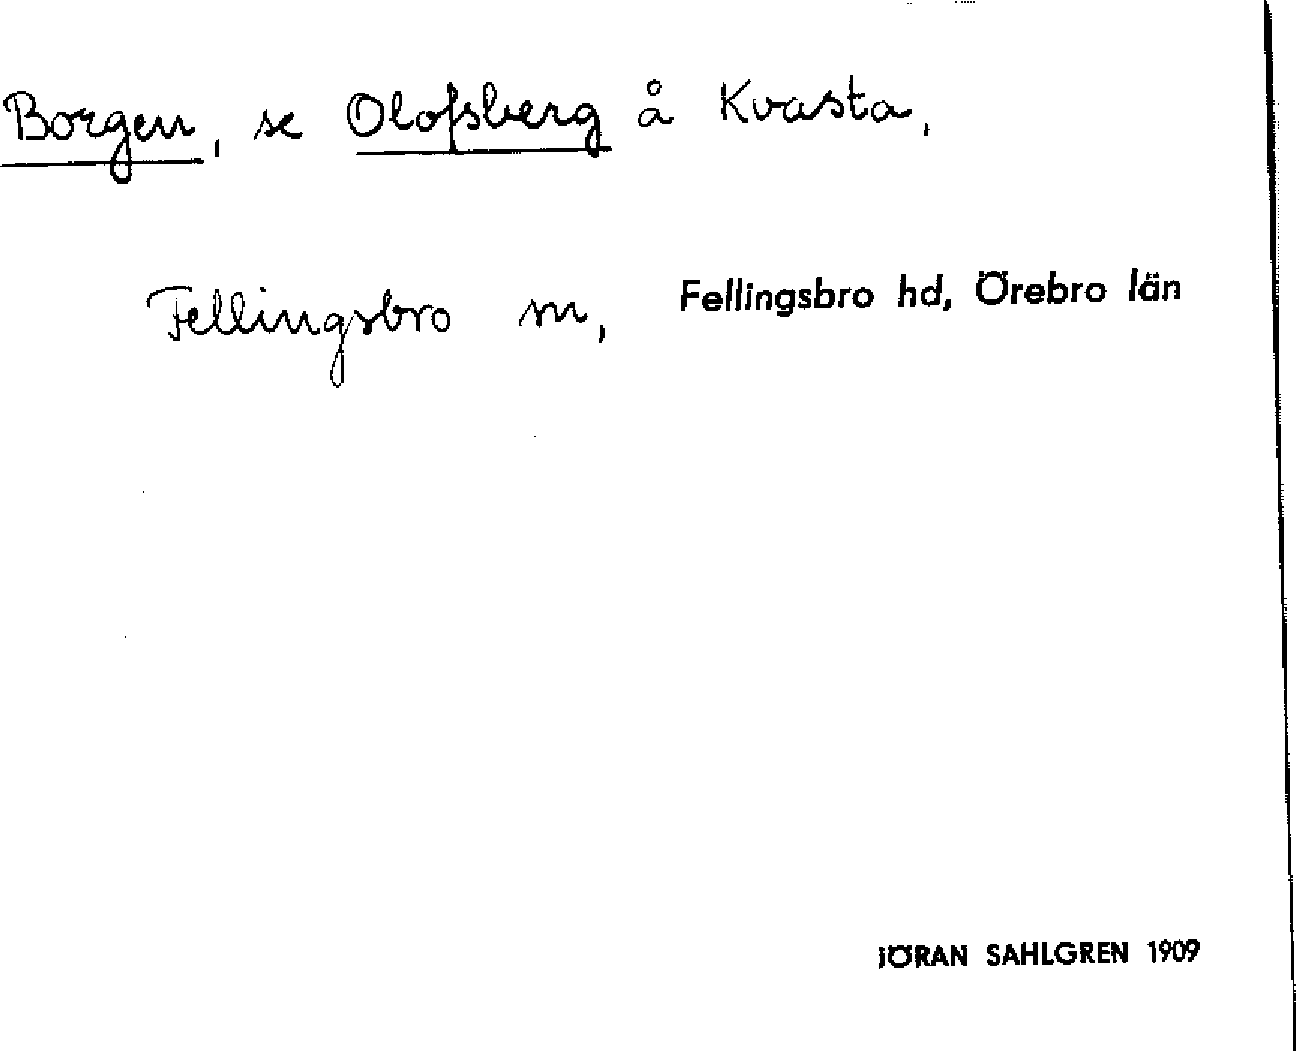 Borgen, se Olofsberg å Kvasta,
Fellingsbro sn, Fellingsbro hd, Örebro län
JÖRAN SAHLGREN 1909